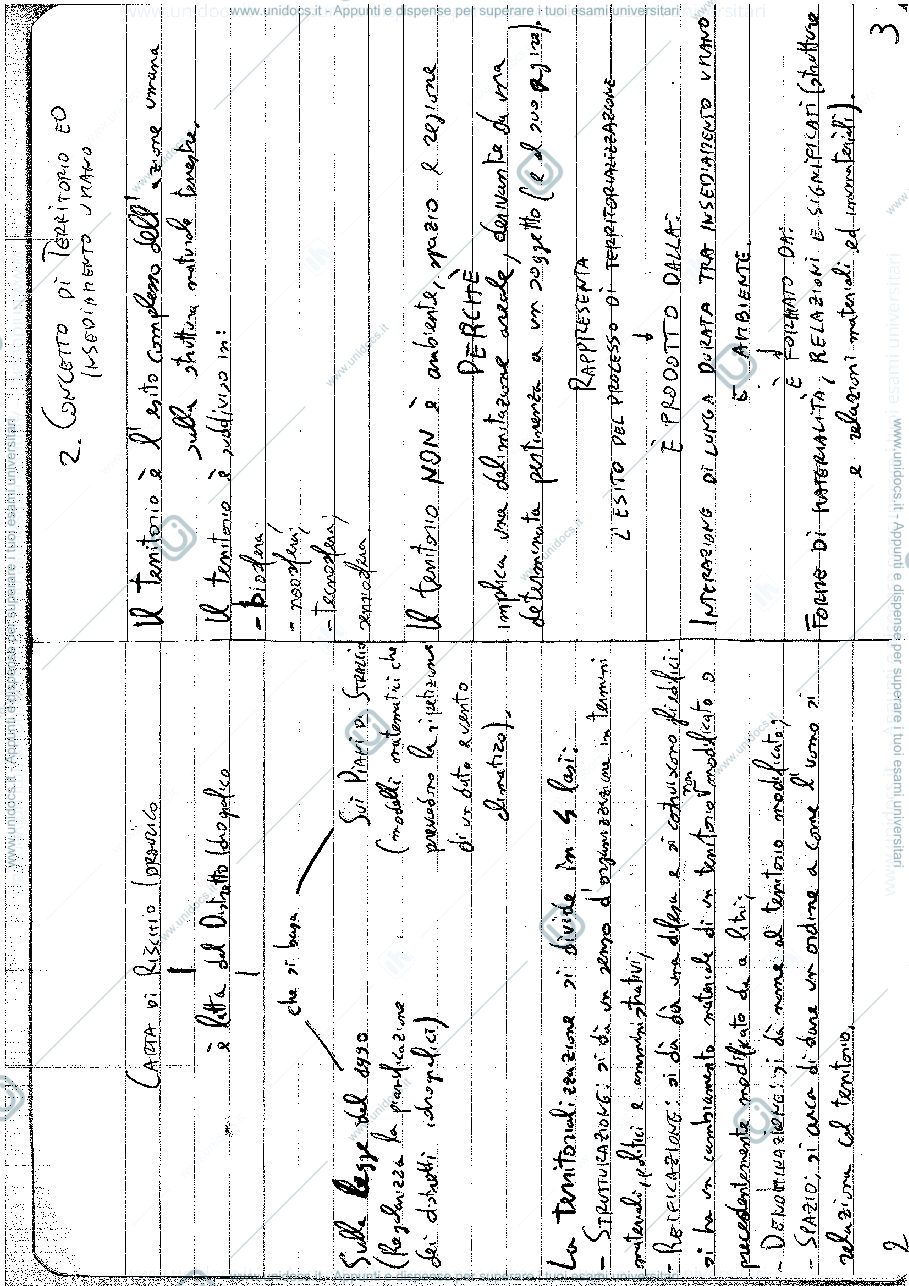 CARTA DI RISCHIO IDRAULICO
è fatta dal Distretto Idrografico
che si basa
Sulla legge del 1990
(Regolarizza la pianificazione
dei distretti idrografici)
Sui PIANI DI STRALCIO
(modelli matematici che
prevedono la ripetizione
di un dato evento
climatico).
La territorializzazione si divide in 4 fasi:
- STRUTTURAZIONE: si dà un senso d'organizzazione in termini
materiali, politici e amministrativi;
- REIFICAZIONE: si dà una difesa e si costruiscono gli edifici.
si ha un cambiamento materiale di un territorio non modificato o
precedentemente modificato da altri;
- DENOMINAZIONE: si dà nome al territorio modificato;
- SPAZIO: si cerca di dare un ordine a come l'uomo si
relaziona col territorio.
2
2. CONCETTO DI TERRITORIO ED
INSEDIAMENTO UMANO
Il territorio è l'esito complesso dell'azione umana
sulla struttura naturale terrestre.
Il territorio è suddiviso in:
- biosfera;
- noosfera;
- tecnosfera;
Il territorio NON è ambiente, spazio e regione
PERCHÈ
implica una delimitazione areale, derivante da una
determinata pertinenza a un soggetto (e al suo agire).
RAPPRESENTA
L'ESITO DEL PROCESSO DI TERRITORIALIZZAZIONE
È PRODOTTO DALLA:
INTERAZIONE DI LUNGA DURATA TRA INSEDIAMENTO UMANO
E AMBIENTE.
È FORMATO DA:
FORME DI MATERIALITÀ, RELAZIONI E SIGNIFICATI (strutture
e relazioni materiali ed immateriali).
3
www.unidocs.it - Appunti e dispense per superare i tuoi esami universitari